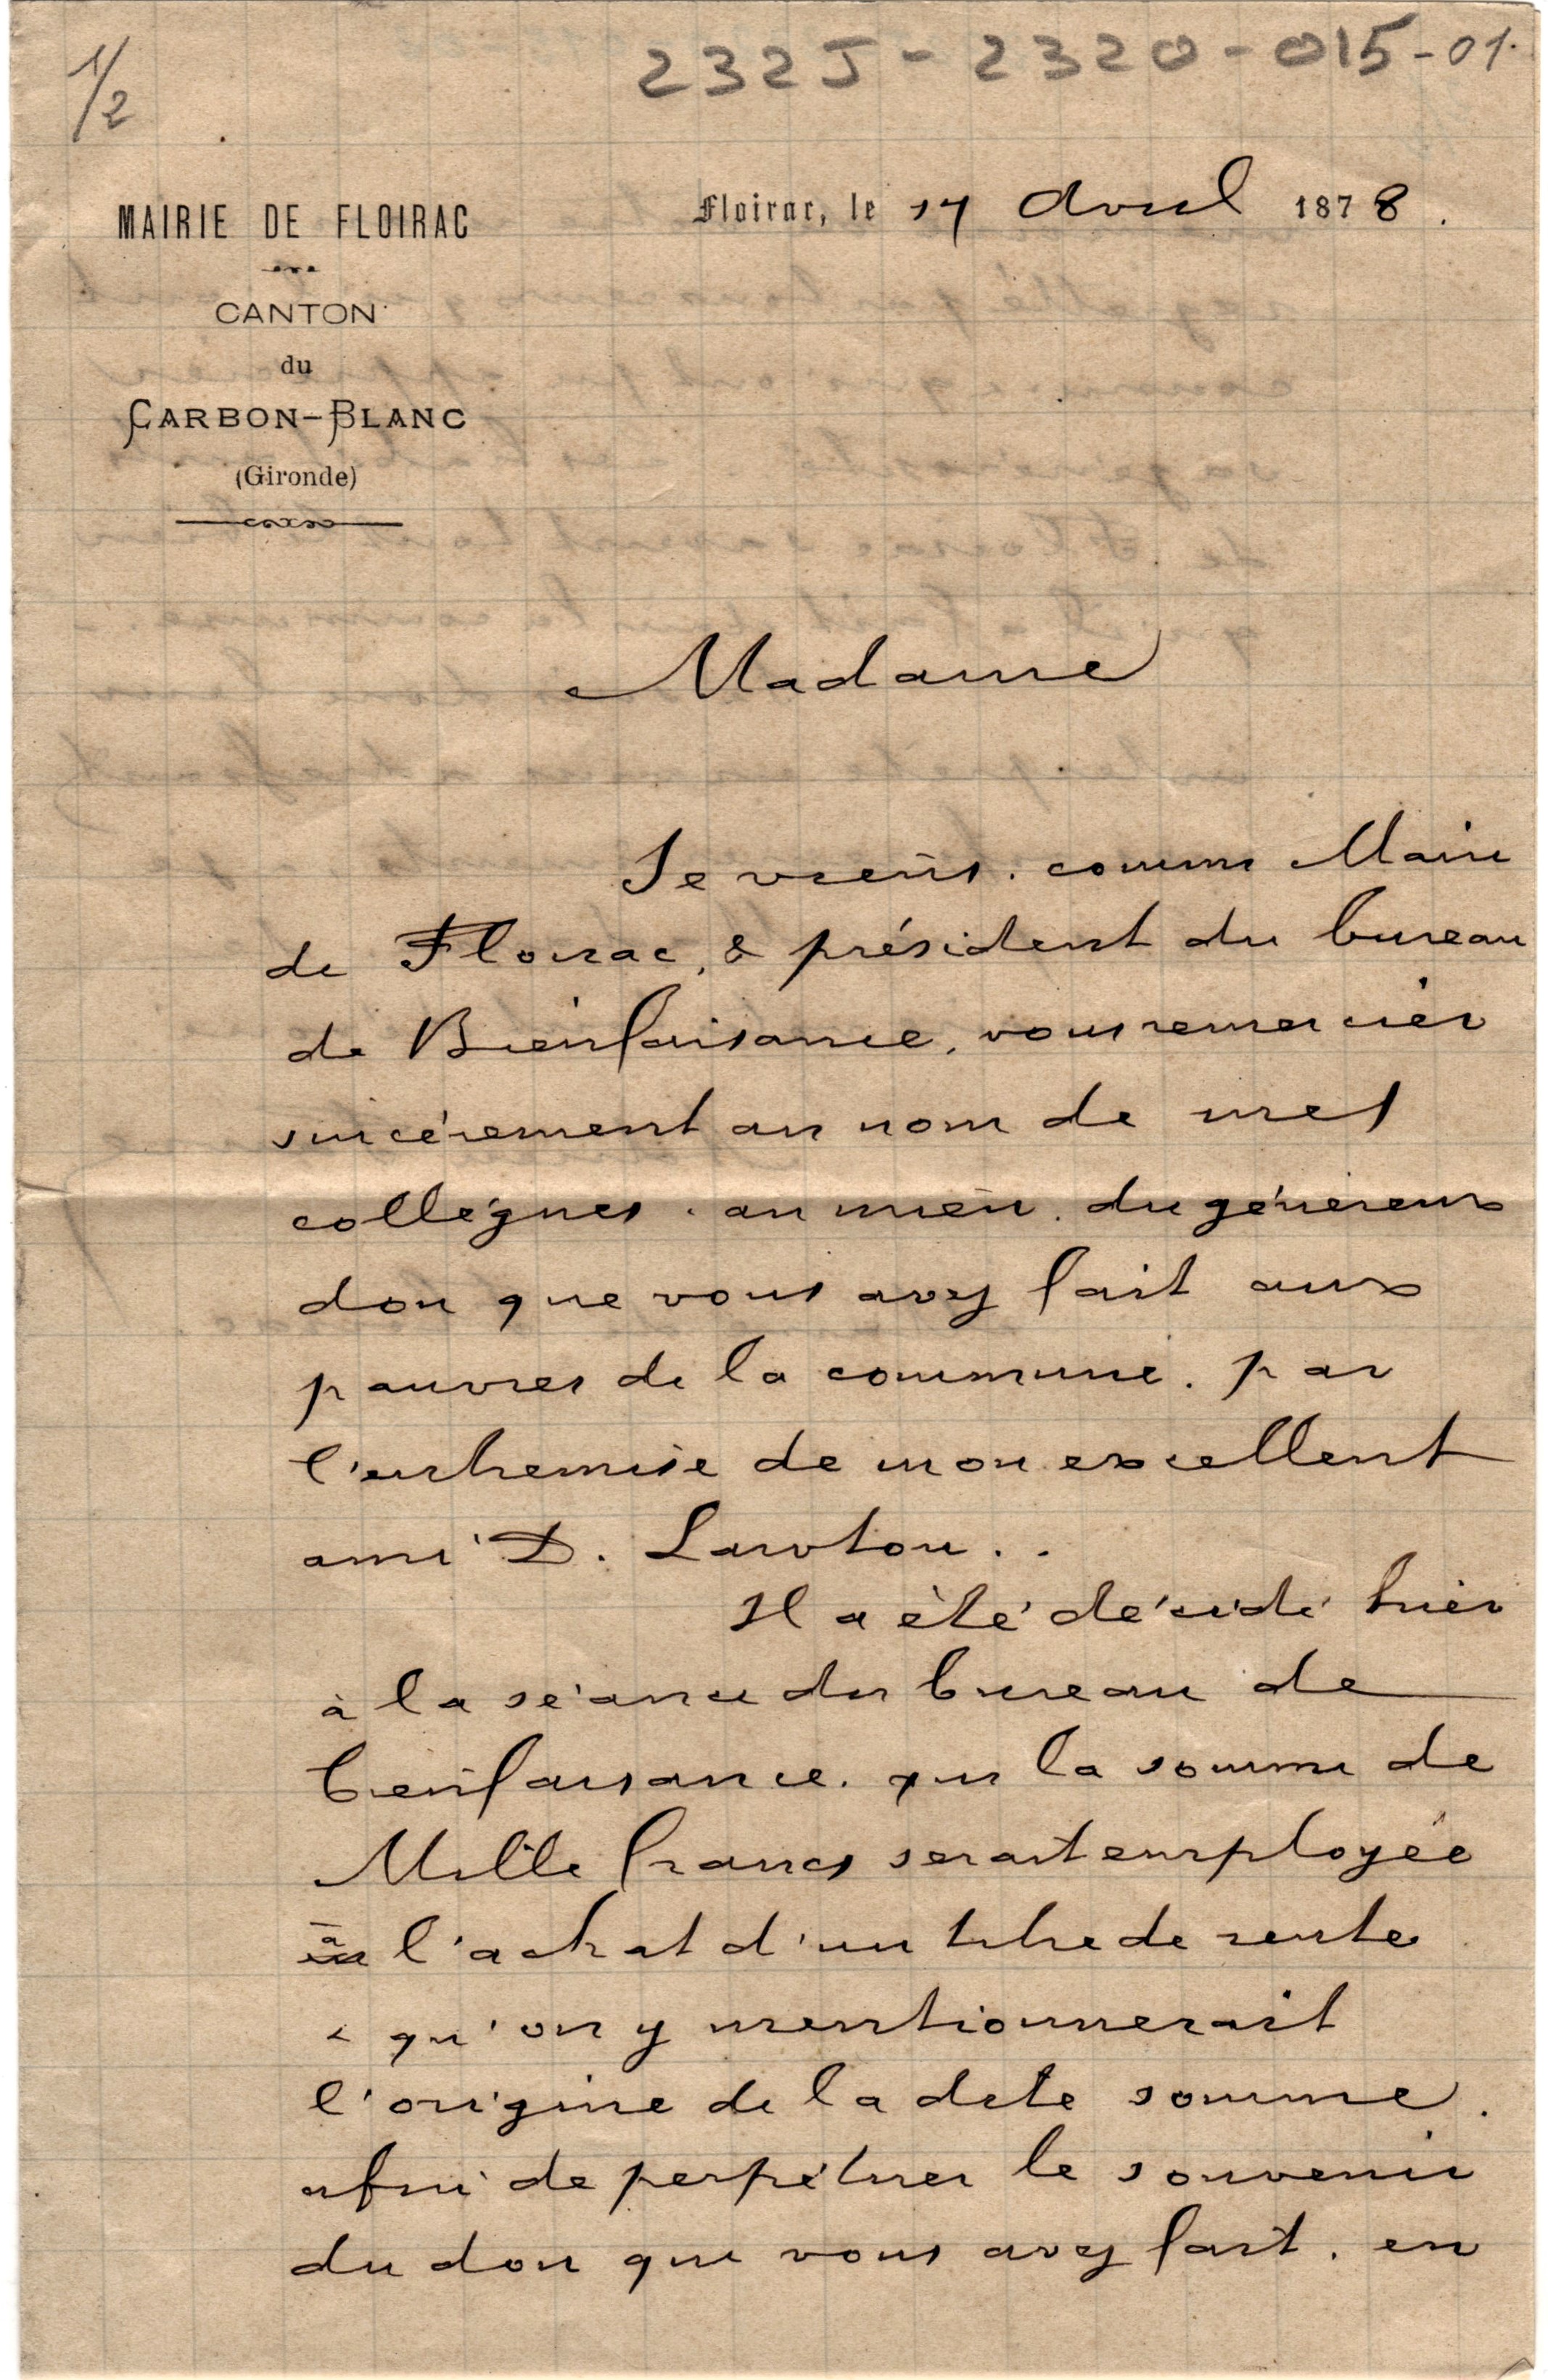 1/2
232J - 2320 - 015 - 01.
MAIRIE DE FLOIRAC
CANTON
du
CARBON-BLANC
(Gironde)
Floirac, le 17 Avril 1878.
Madame
Je viens. comme Maire
de Floirac, & président du bureau
de Bienfaisance, vous remercier
sincérement au nom de mes
collégues. au mien. du généreux
don que vous avez fait aux
pauvres de la commune. par
l'entremise de mon excellent
ami D. Lawton..
Il a été décidé hier
à la séance du bureau de
bienfaisance. que la somme de
Mille francs serait employée
à l'achat d'un titre de rente
& qu'on y mentionnerait
l'origine de la dete somme.
afin de perpétuer le souvenir
du don que vous avez fait. en